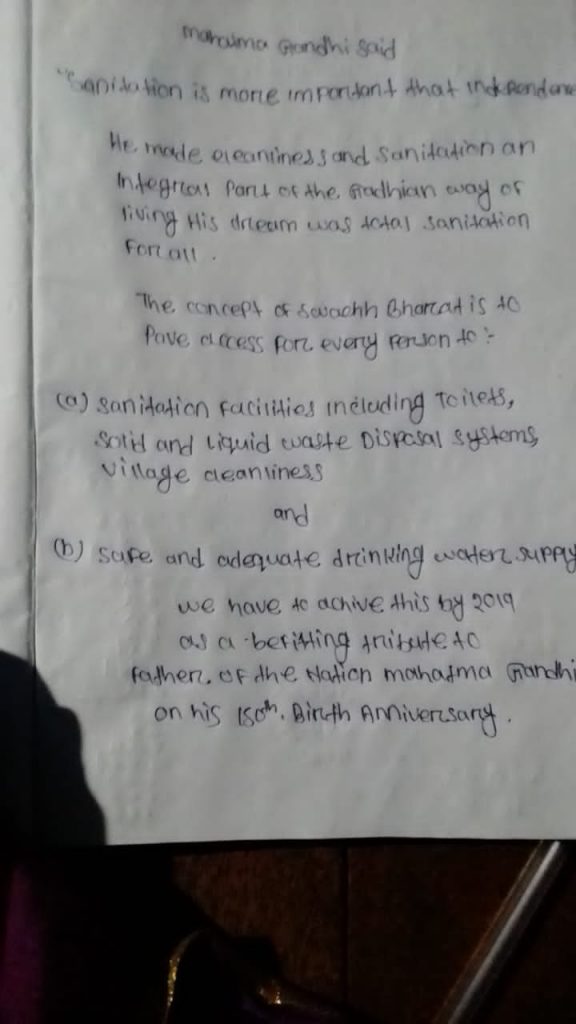 mahatma Gandhi said
"Sanitation is more important that independen
He made cleanliness and sanitation an
integral part of the Gadhian way of
living His dream was total sanitation
for all.
The concept of swachh Bharat is to
Pave access for every person to :-
(a) sanitation facilities including toilets,
solid and liquid waste Disposal systems,
village cleanliness
and
(b) safe and adequate drinking water supply
we have to achive this by 2019
as a befitting tribute to
father. of the Nation mahatma Gandhi
on his 150th. Birth Anniversary.